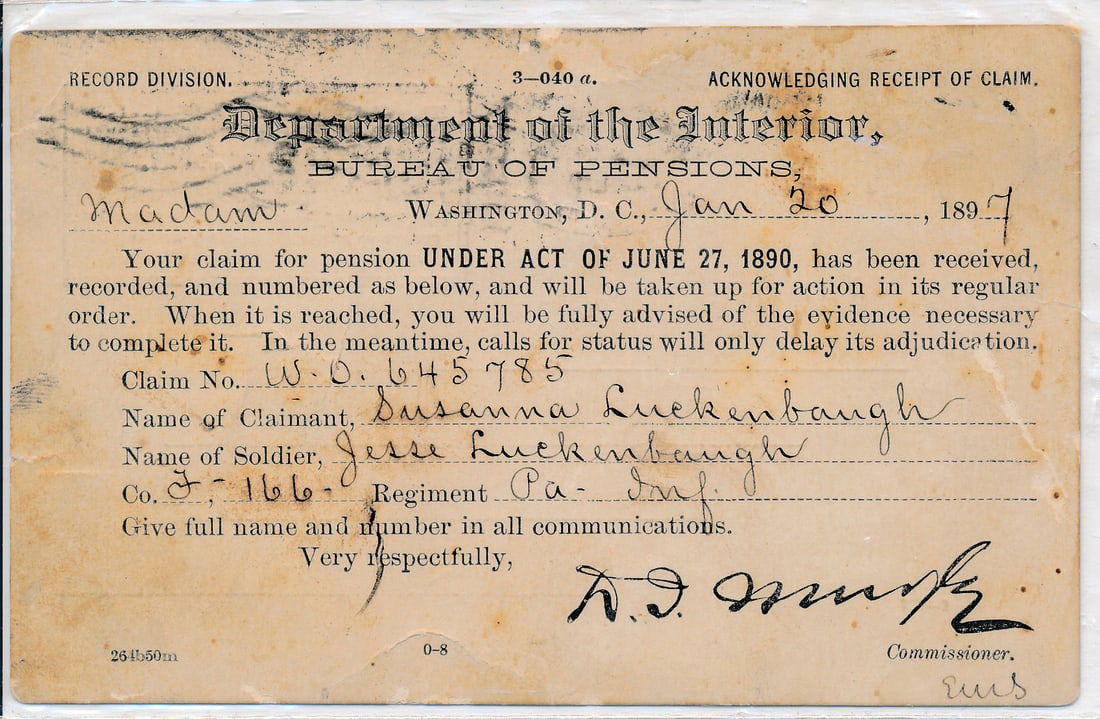 RECORD DIVISION. 3—040 a. ACKNOWLEDGING RECEIPT OF CLAIM.
Department of the Interior,
BUREAU OF PENSIONS,
Madam WASHINGTON, D. C., Jan 20, 1897
Your claim for pension UNDER ACT OF JUNE 27, 1890, has been received,
recorded, and numbered as below, and will be taken up for action in its regular
order. When it is reached, you will be fully advised of the evidence necessary
to complete it. In the meantime, calls for status will only delay its adjudication.
Claim No. W. O. 645785
Name of Claimant, Susanna Luckenbaugh
Name of Soldier, Jesse Luckenbaugh
Co. F, 166- Regiment Pa- Inf.
Give full name and number in all communications.
Very respectfully,
D. I. Murphy
264b50m 0-8 Commissioner.